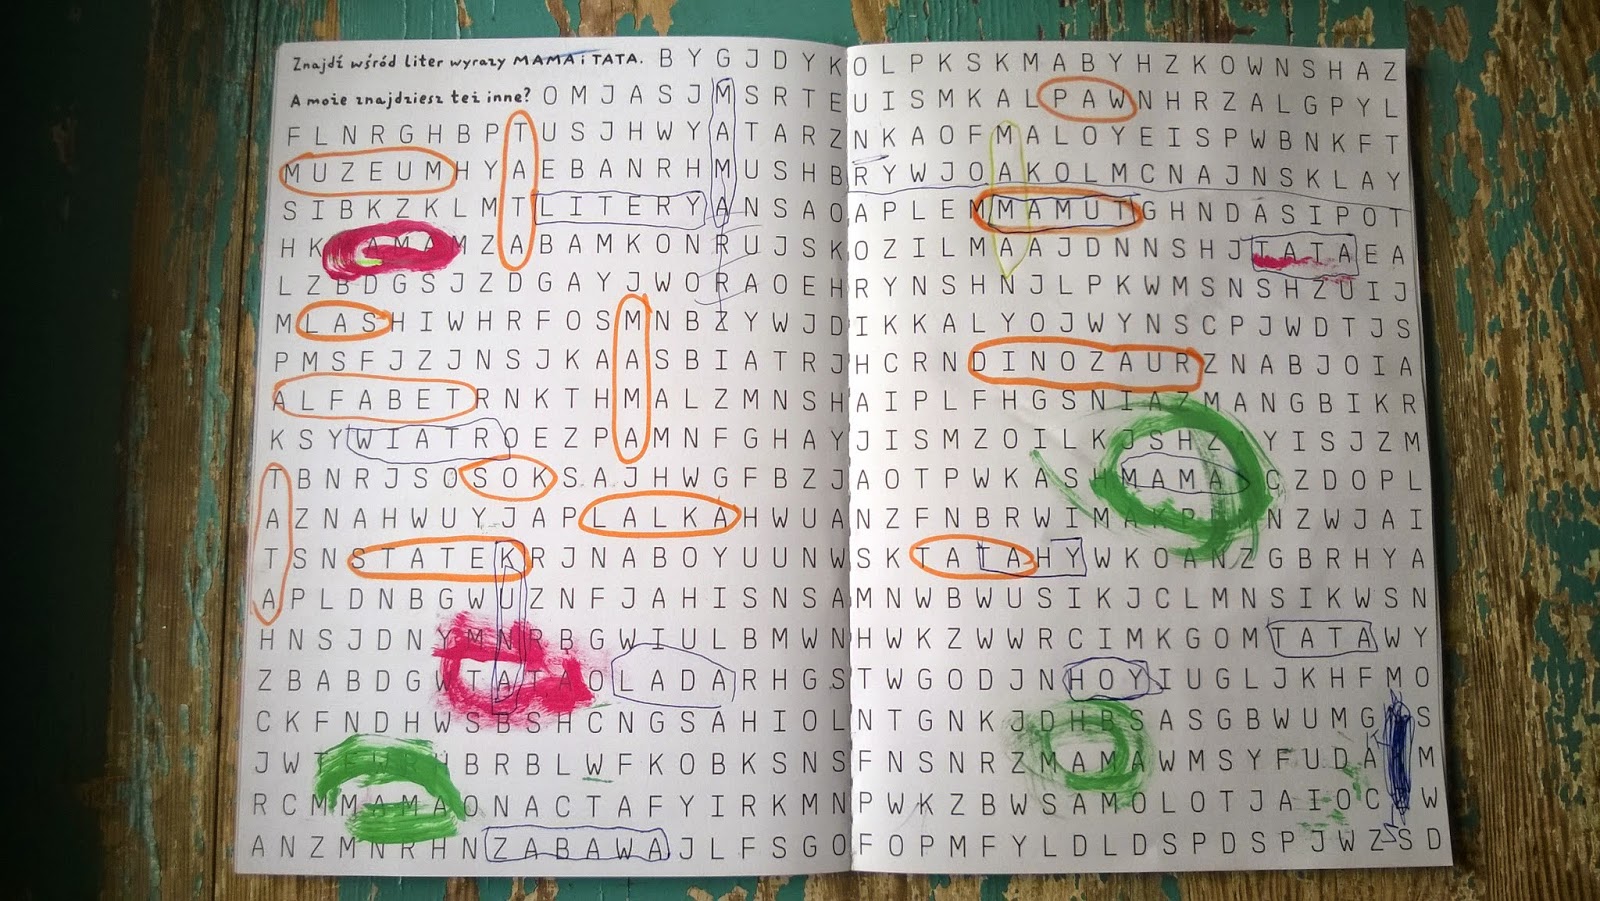 Znajdź wśród liter wyrazy MAMA i TATA. B Y G J D Y K O L P K S K M A B Y H Z K O W N S H A Z
A może znajdziesz też inne? O M J A S J M S R T E U I S M K A L P A W N H R Z A L G P Y L
F L N R G H B P T U S J H W Y A T A R Z N K A O F M A L O Y E I S P W B N K F T
M U Z E U M H Y A E B A N R H M U S H B R Y W J O A K O L M C N A J N S K L A Y
S I B K Z K L M T L I T E R Y A N S A O A P L E M M A M U T G H N D A S I P O T
H K A M A M Z A B A M K O N R U J S K O Z I L M A A J D N N S H J T A T A E A
L Z B D G S J Z D G A Y J W O R A O E H R Y N S H N J L P K W M S N S H Z U I J
M L A S H I W H R F O S M N B Z Y W J D I K K A L Y O J W Y N S C P J W D T J S
P M S F J Z J N S J K A A S B I A T R J H C R N D I N O Z A U R Z N A B J O I A
A L F A B E T R N K T H M A L Z M N S H A I P L F H G S N I A Z M A N G B I K R
K S Y W I A T R O E Z P A M N F G H A Y J I S M Z O I L K J S H Z A Y I S J Z M
T B N R J S O S O K S A J H W G F B Z J A O T P W K A S H M A M A C Z D O P L
A Z N A H W U Y J A P L A L K A H W U A N Z F N B R W I M A K P N Z W J A I
T S N S T A T E K R J N A B O Y U U N W S K T A T A H Y W K O A N Z G B R H Y A
A P L D N B G W U Z N F J A H I S N S A M N W B W U S I K J C L M N S I K W S N
H N S J D N Y M N R B G W I U L B M W N H W K Z W W R C I M K G O M T A T A W Y
Z B A B D G W T A T A O L A D A R H G S T W G O D J N H O Y I U G L J K H F M O
C K F N D H W S B S H C N G S A H I O L N T G N K J D H B S A S G B W U M G S
J W T E W R H B R B L W F K O B K S N S F N S N R Z M A M A W M S Y F U D A M
R C M M A M A O N A C T A F Y I R K M N P W K Z B W S A M O L O T J A I O C W
A N Z M N R H N Z A B A W A J L F S G O F O P M F Y L D L D S P D S P J W Z S D